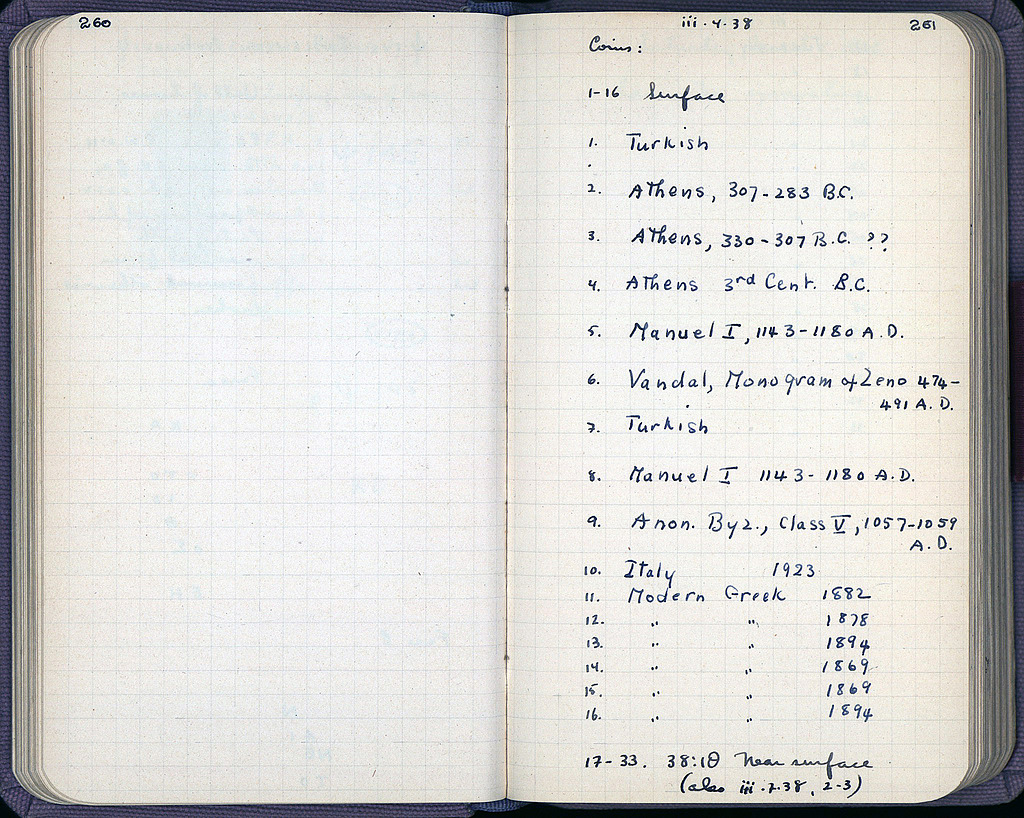 260
iii.4.38 261
Coins:
1-16 Surface
1. Turkish
2. Athens, 307-283 B.C.
3. Athens, 330-307 B.C. ??
4. Athens 3rd Cent. B.C.
5. Manuel I, 1143-1180 A.D.
6. Vandal, Monogram of Zeno 474-
491 A.D.
7. Turkish
8. Manuel I 1143-1180 A.D.
9. Anon. Byz., Class V, 1057-1059
A.D.
10. Italy 1923
11. Modern Greek 1882
12. " " 1878
13. " " 1894
14. " " 1869
15. " " 1869
16. " " 1894
17-33. 38:ΙΘ Near surface
(also iii.7.38, 2-3)